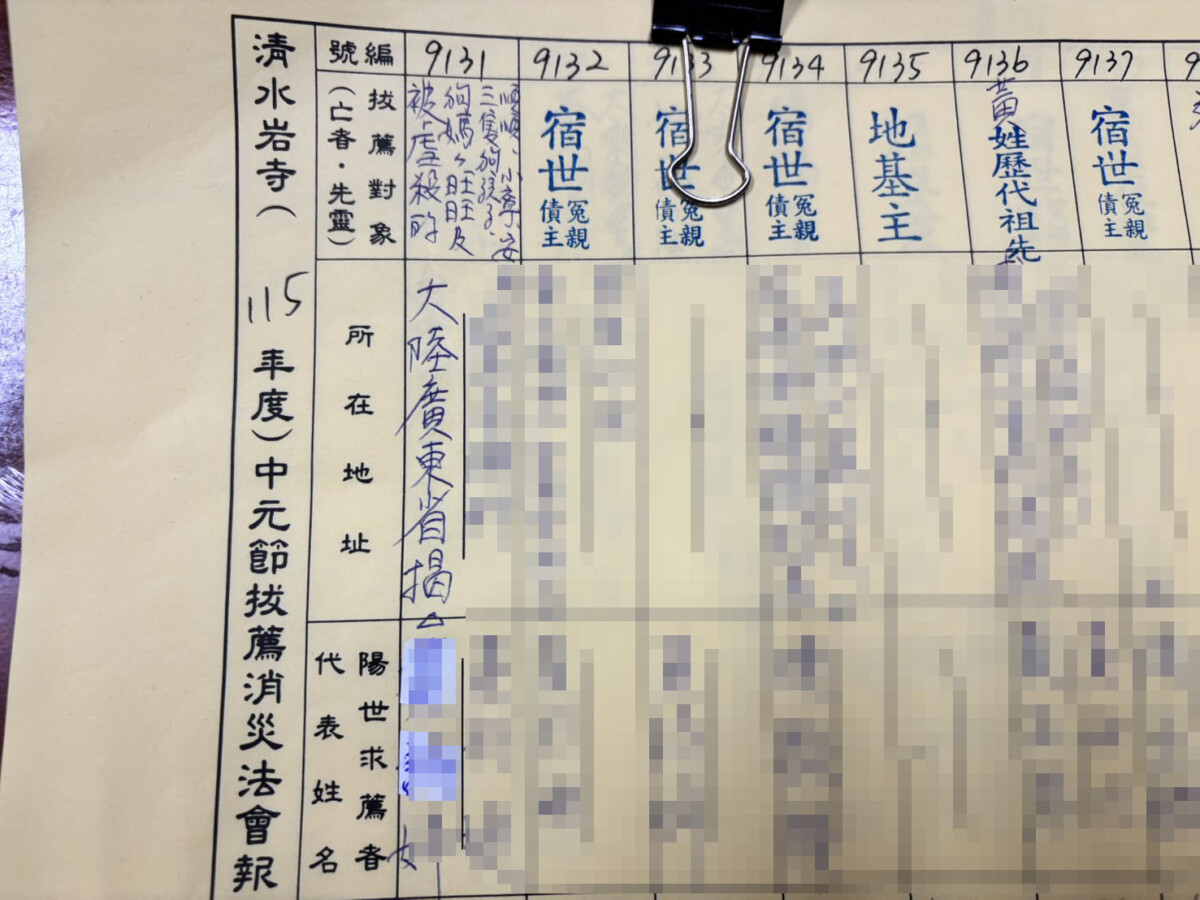 清水岩寺(115年度)中元節拔薦消災法會報
編號
9131
9132
9133
9134
9135
9136
9137
拔薦對象
(亡者・先靈)
順順、小乖、安
三隻狗孩子、
狗媽々旺旺及
被虐殺的
宿世
冤親
債主
宿世
冤親
債主
宿世
冤親
債主
地基主
黃姓歷代祖先
宿世
冤親
債主
所在地址
大陸廣東省揭
陽世求薦者
代表姓名